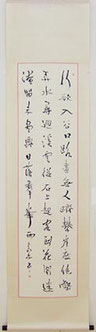 行歌入谷口路盡無人躋攀崖度絕壑
弄水尋迴溪雲從石上起客到花間迷
淹留未盡興日落群峰西